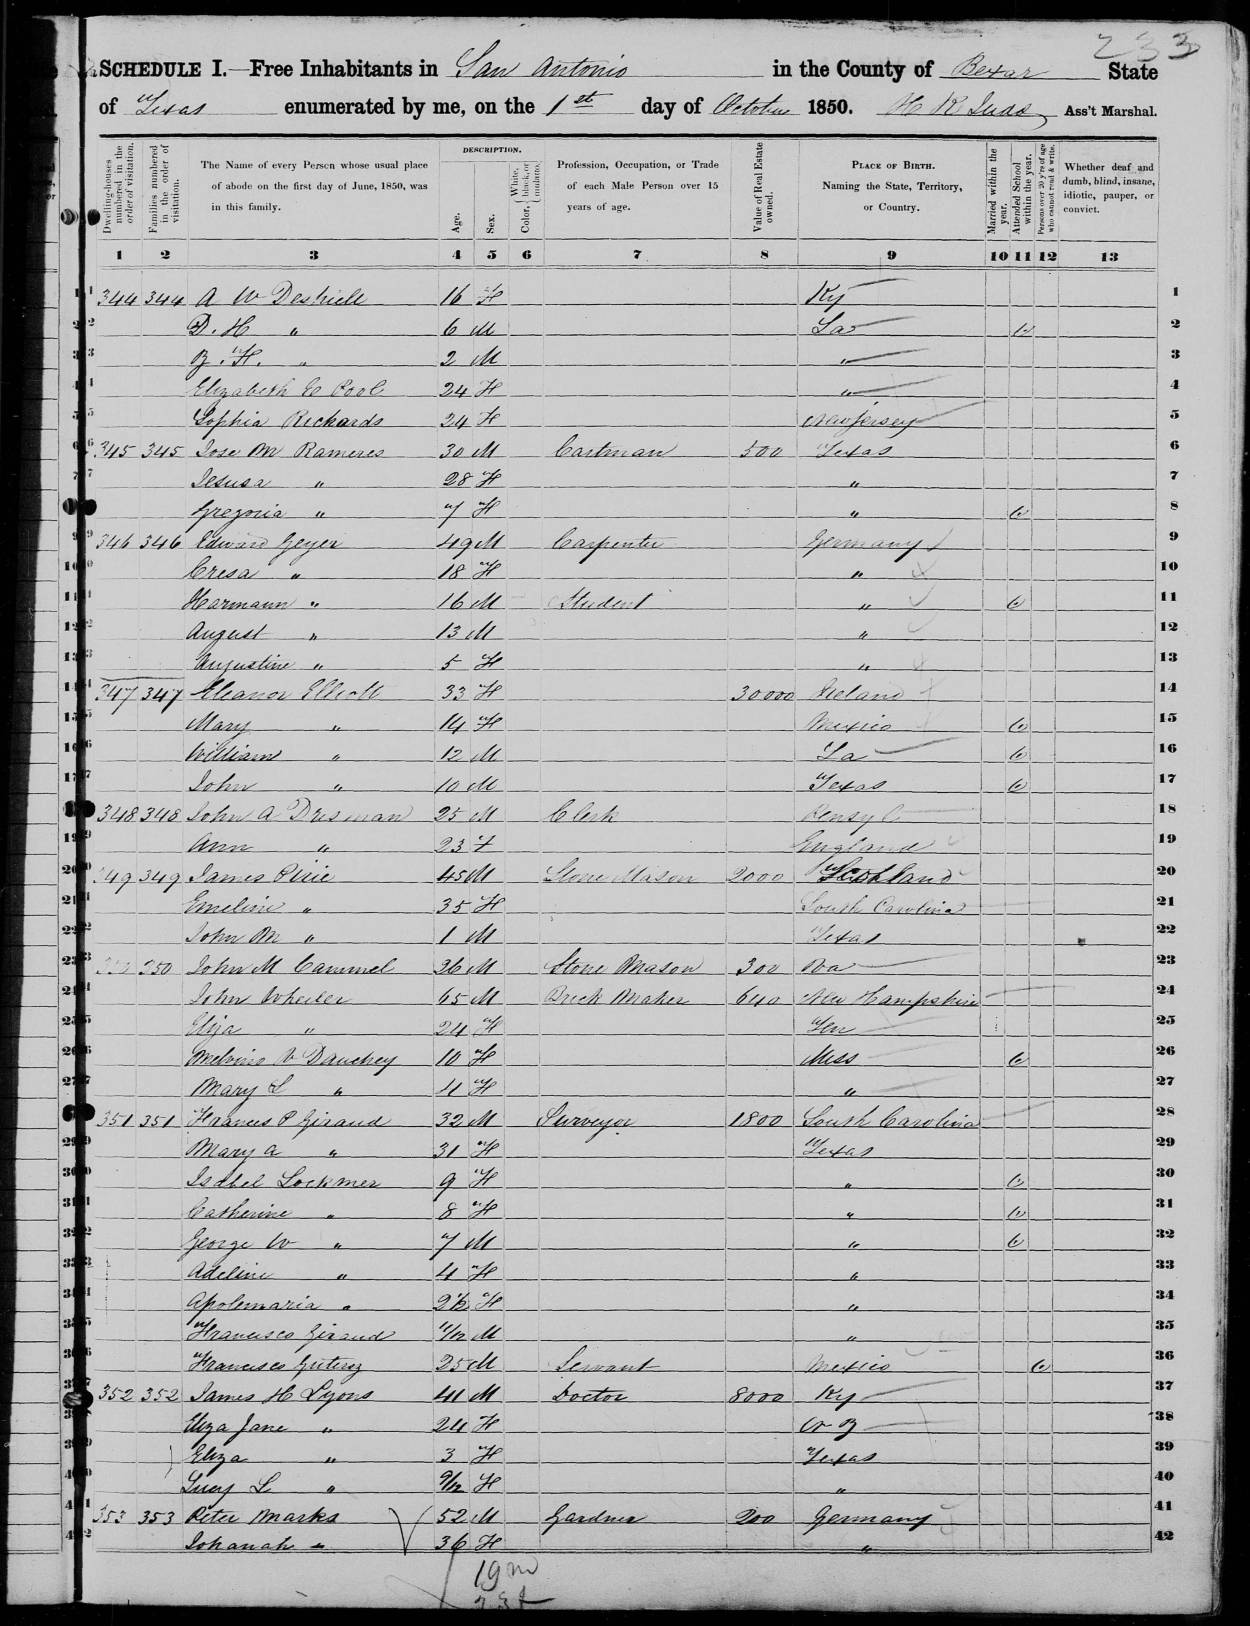 233
SCHEDULE I.—Free Inhabitants in San Antonio in the County of Bexar State
of Texas enumerated by me, on the 1st day of October 1850. H K Judd Ass't Marshal.
Dwelling-houses numbered in the order of visitation.
Families numbered in the order of visitation.
The Name of every Person whose usual place of abode on the first day of June, 1850, was in this family.
DESCRIPTION.
Age.
Sex.
Color, White, black, or mulatto.
Profession, Occupation, or Trade of each Male Person over 15 years of age.
Value of Real Estate owned.
PLACE OF BIRTH. Naming the State, Territory, or Country.
Married within the year.
Attended School within the year.
Persons over 20 y'rs of age who cannot read & write.
Whether deaf and dumb, blind, insane, idiotic, pauper, or convict.
1 2 3 4 5 6 7 8 9 10 11 12 13
1 344 344 A W Deshiell 16 F Ky 1
2 D. H " 6 M La 2
3 B. F. " 2 M " 3
4 Elizabeth Pool 24 F " 4
5 Sophia Richards 24 F New Jersey 5
6 345 345 Jose M Rameres 30 M Cartman 500 Texas 6
7 Jesusa " 28 F " 7
8 Gregoria " 7 F " 8
9 346 346 Edward Geyer 49 M Carpenter Germany 9
10 Cresa " 18 F " 10
11 Harmann " 16 M Student " 11
12 August " 13 M " 12
13 Augustine " 5 F " 13
14 347 347 Eleanor Elliott 33 F 30000 Ireland 14
15 Mary " 14 F Mexico 15
16 William " 12 M La 16
17 John " 10 M Texas 17
18 348 348 John A Dresman 25 M Clerk Pensyl 18
19 Ann " 23 F England 19
20 349 349 James Pirie 45 M Stone Mason 2000 Scotland 20
21 Emeline " 35 F South Carolina 21
22 John M " 1 M Texas 22
23 350 350 John M Cammel 36 M Stone Mason 300 Va 23
24 John Wheeler 65 M Brick Maker 640 New Hampshire 24
25 Eliza " 24 F Ten 25
26 Melvina V Dauchey 10 F Miss 26
27 Mary L " 4 F " 27
28 351 351 Francis P Giraud 32 M Surveyor 1800 South Carolina 28
29 Mary A " 31 F Texas 29
30 Isabel Lockmer 9 F " 30
31 Catherine " 8 F " 31
32 George W " 7 M " 32
33 Adeline " 4 F " 33
34 Apolemaria " 2½ F " 34
35 Francisco Giraud 11/12 M " 35
36 Francisco Guterez 25 M Servant Mexico 36
37 352 352 James H Lyons 41 M Doctor 8000 Ky 37
38 Eliza Jane " 24 F 38
39 Eliza " 3 F Texas 39
40 Lucy L " 9/12 F " 40
41 353 353 Peter Marks 52 M Gardner 200 Germany 41
42 Johanah " 36 F " 42
19 m
23 f